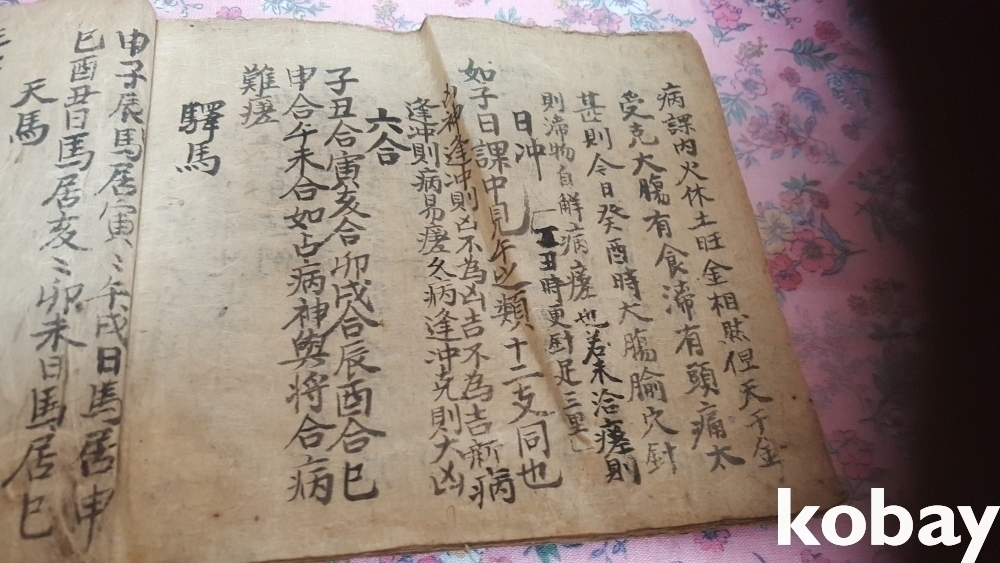 病課內火休土旺金相然但天干金
受克大膓有食滯有頭痛太
甚則今日癸酉時大膓腧穴針
則滯物自解病瘥也若未洽瘥則
丑時更針足三里
日冲
如子日課中見午之類十二支同也
神逢冲則凶不為凶吉不為吉新病
逢冲則病易瘥久病逢冲克則大凶
六合
子丑合寅亥合卯戌合辰酉合巳
申合午未合如占病神與将合病
難瘥
驛馬
申子辰馬居寅〻午戌日馬居申
巳酉丑日馬居亥〻卯未日馬居巳
天馬
kobay